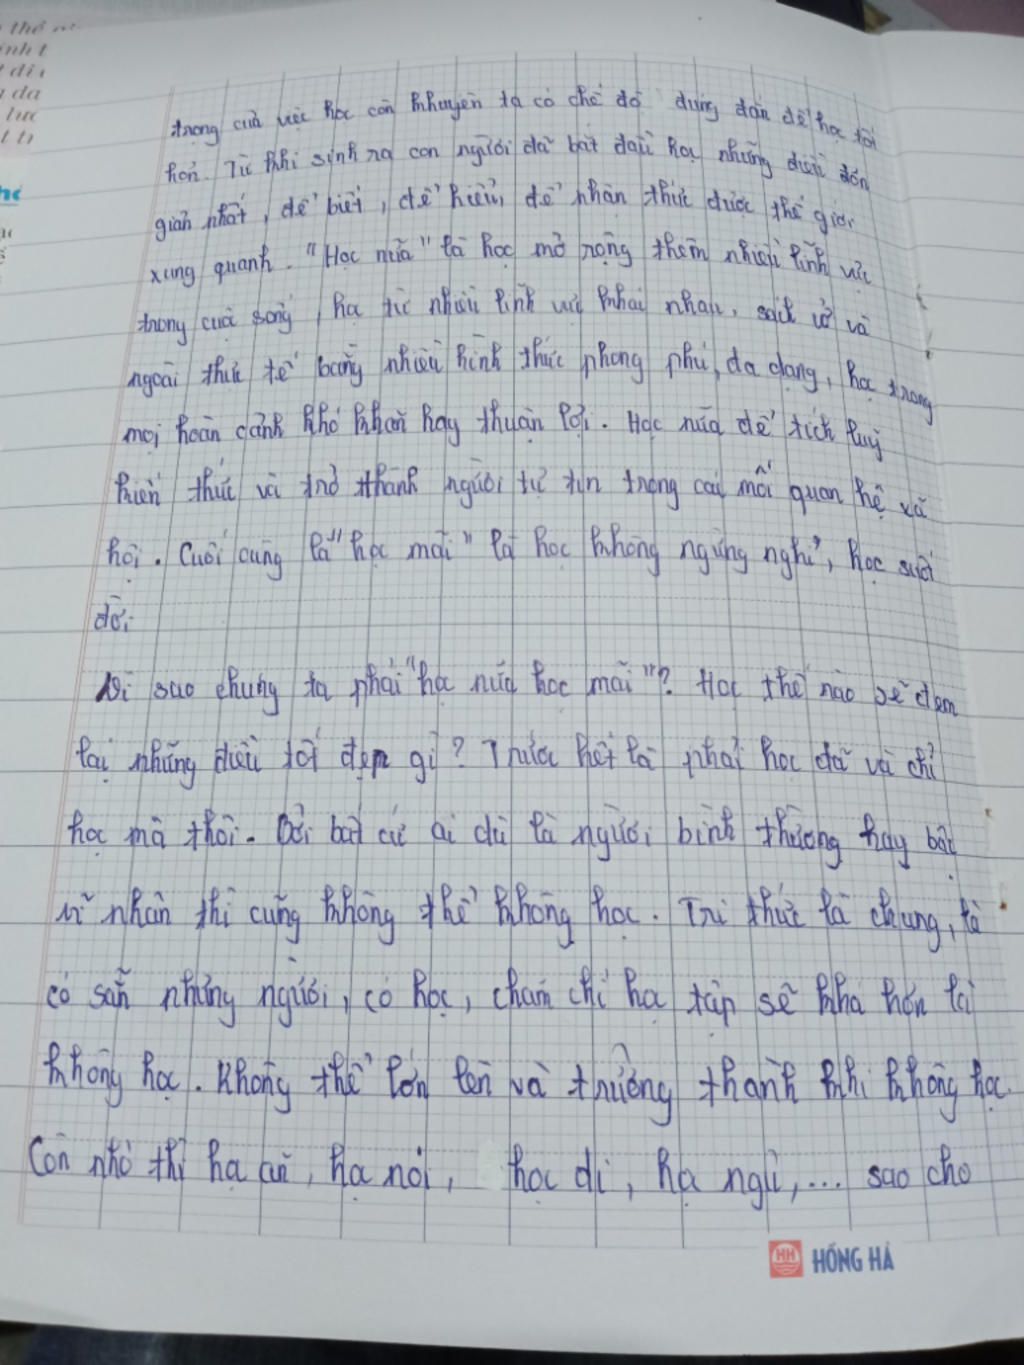 trọng của việc học còn khuyên ta có chế độ đúng đắn để học tốt
hơn. Từ khi sinh ra con người đã bắt đầu học những điều đơn
giản nhất, để biết, để hiểu, để nhận thức được thế giới
xung quanh. "Học nữa" là học mở rộng thêm nhiều lĩnh vực
trong cuộc sống, học từ nhiều lĩnh vực khác nhau, sách vở và
ngoài thực tế bằng nhiều hình thức phong phú, đa dạng, học trong
mọi hoàn cảnh khó khăn hay thuận lợi. Học nữa để tích luỹ
kiến thức và trở thành người tự tin trong các mối quan hệ xã
hội. Cuối cùng là "học mãi" là học không ngừng nghỉ, học suốt
đời.
Vì sao chúng ta phải "học nữa học mãi"? Học thế nào sẽ đem
lại những điều tốt đẹp gì? Trước hết là phải học đã và chỉ
học mà thôi. Bởi bất cứ ai dù là người bình thường hay bậc
vĩ nhân thì cũng không thể không học. Tri thức là chung, là
có sẵn nhưng người, có học, chăm chỉ học tập sẽ khá hơn là
không học. Không thể lớn lên và trưởng thành khi không học.
Còn nhỏ thì học ăn, học nói, học đi, học ngủ,... sao cho
HH HỒNG HÀ
thể
inh t